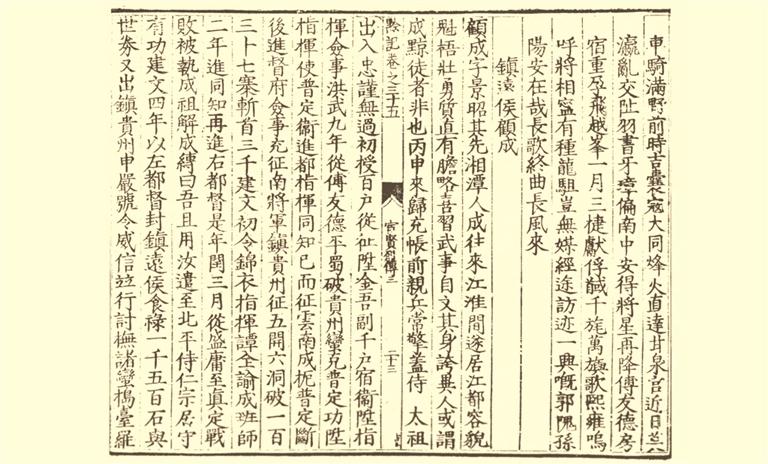 申騎滿野前時吉囊寇大同烽火直達甘泉宮近日
瀛亂交阯羽書牙璋徧南中安得將星再降傅友德房
宿重孕飛越峯一月三捷獻俘馘千旄萬旟歌熙雍嗚
呼將相寧有種龍駏豈無媒經途訪迹一興嘅郭隗孫
陽安在哉長歌終曲長風來
鎮遠侯顧成
顧成字景昭其先相潭人成往來江淮間遂居江都容貌
魁梧壯勇質直有膽略喜習武事自文其身誇異人或謂
成黥徒者非也丙申來歸充帳前親兵常擎蓋侍 太祖
黔記卷之三十五
宦賢列傳二
二十三
出入忠謹無過初授百戶從征陞金吾副千戶宿衛陞指
揮僉事洪武九年從傅友德平蜀破貴州蠻充普定功陞
指揮使普定衛進都指揮同知已而征雲南成扼普定斷
後進督府僉事充征南將軍鎮貴州征五開六洞破一百
三十七寨斬首三千建文初令錦衣指揮譚全諭成班師
二年進同知再進右都督是年閏三月從盛庸至真定戰
敗被執成祖解成縛曰吾且用汝遣至北平侍仁宗居守
有功建文四年以左都督封鎮遠侯食祿一千五百石與
世券又出鎮貴州申嚴號令威信竝行討撫諸蠻搗臺羅